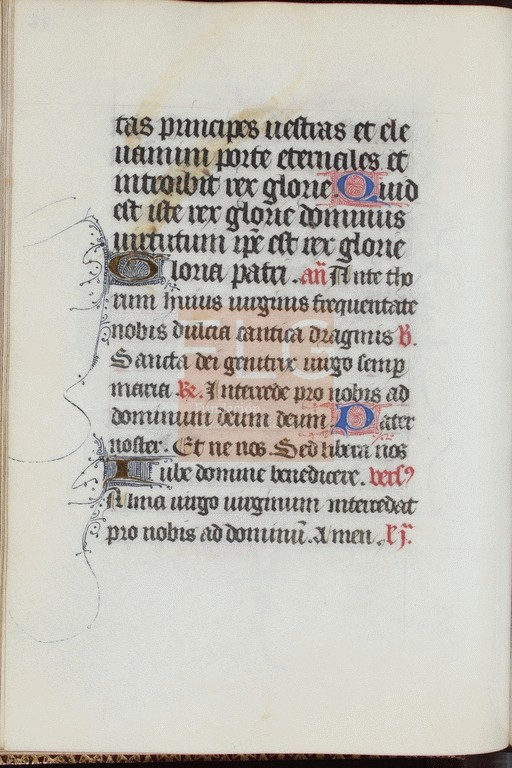 tas principes uestras et ele
uamini porte eternales et
introibit rex glorie Quid
est iste rex glorie dominus
uirtutum ipẽ est rex glorie
Gloria patri . añ Ante tho
rum huius uirginis frequentate
nobis dulcia cantica dragmis V.
Sancta dei genitrix uirgo semp
maria. R. Intercede pro nobis ad
dominum deum deum Pater
noster. Et ne nos. Sed libera nos
Iube domine benedicere. vers9
Alma uirgo uirginum intercedat
pro nobis ad dominũ. Amen .